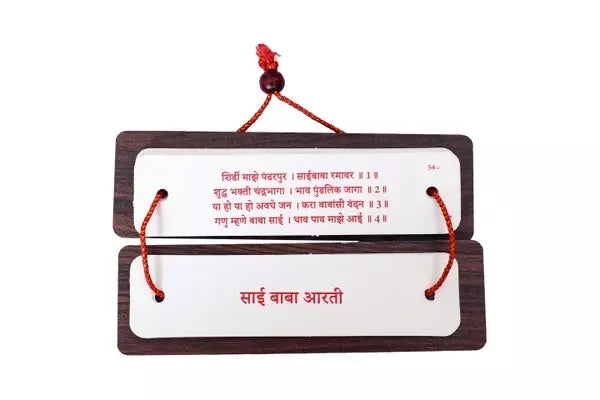 54
शिर्डी माझे पंढरपुर । साईबाबा रमावर ॥ 1 ॥
शुद्ध भक्ती चंद्रभागा । भाव पुंडलिक जागा ॥ 2 ॥
या हो या हो अवघे जन । करा बाबांसी वंदन ॥ 3 ॥
गणु म्हणे बाबा साई । धाव पाव माझे आई ॥ 4 ॥
साई बाबा आरती